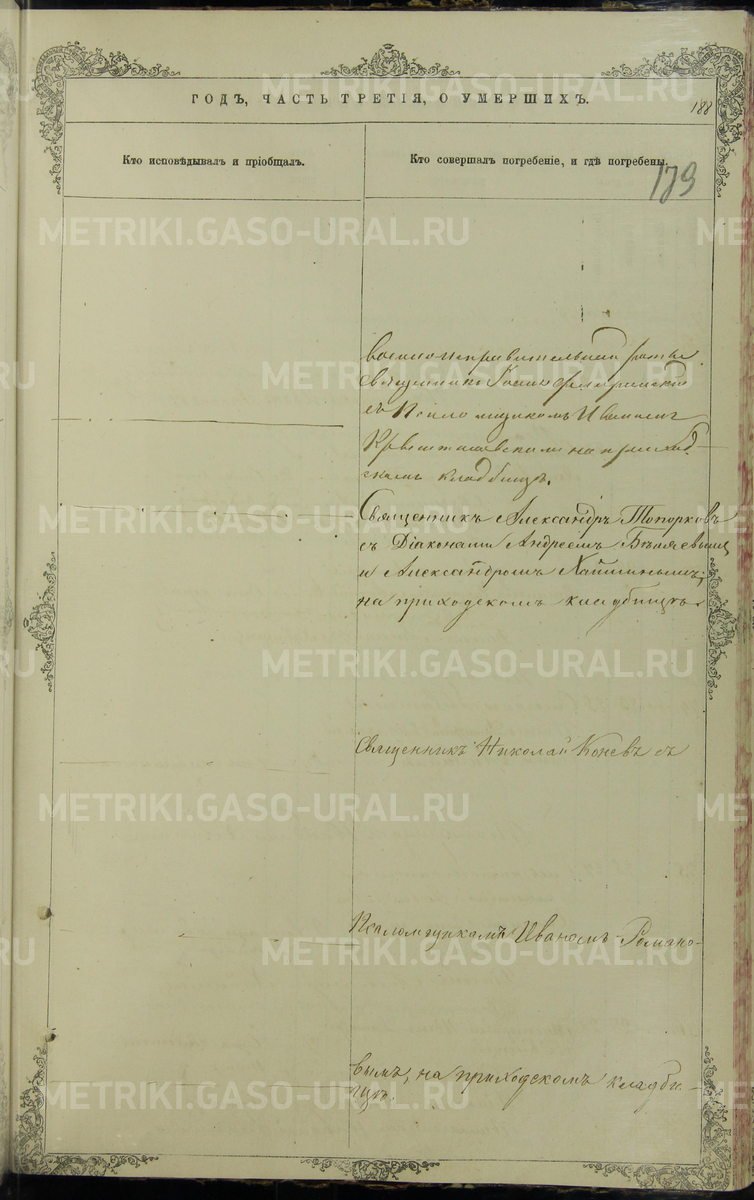 ГОДЪ, ЧАСТЬ ТРЕТІЯ, О УМЕРШИХЪ.
188
Кто исповѣдывалъ и пріобщалъ.
Кто совершалъ погребеніе, и гдѣ погребены.
179
Священникъ
съ Псаломщикомъ Иваномъ
на приход-
скомъ кладбищѣ.
Священникъ Александръ Топорковъ
съ Діаконами Андреемъ Бѣляевымъ
и Александромъ Хайминымъ,
на приходскомъ кладбищѣ.
Священникъ Николай Коневъ съ
Псаломщикомъ Иваномъ Романо-
вымъ, на приходскомъ кладби-
щѣ.
METRIKI.GASO-URAL.RU